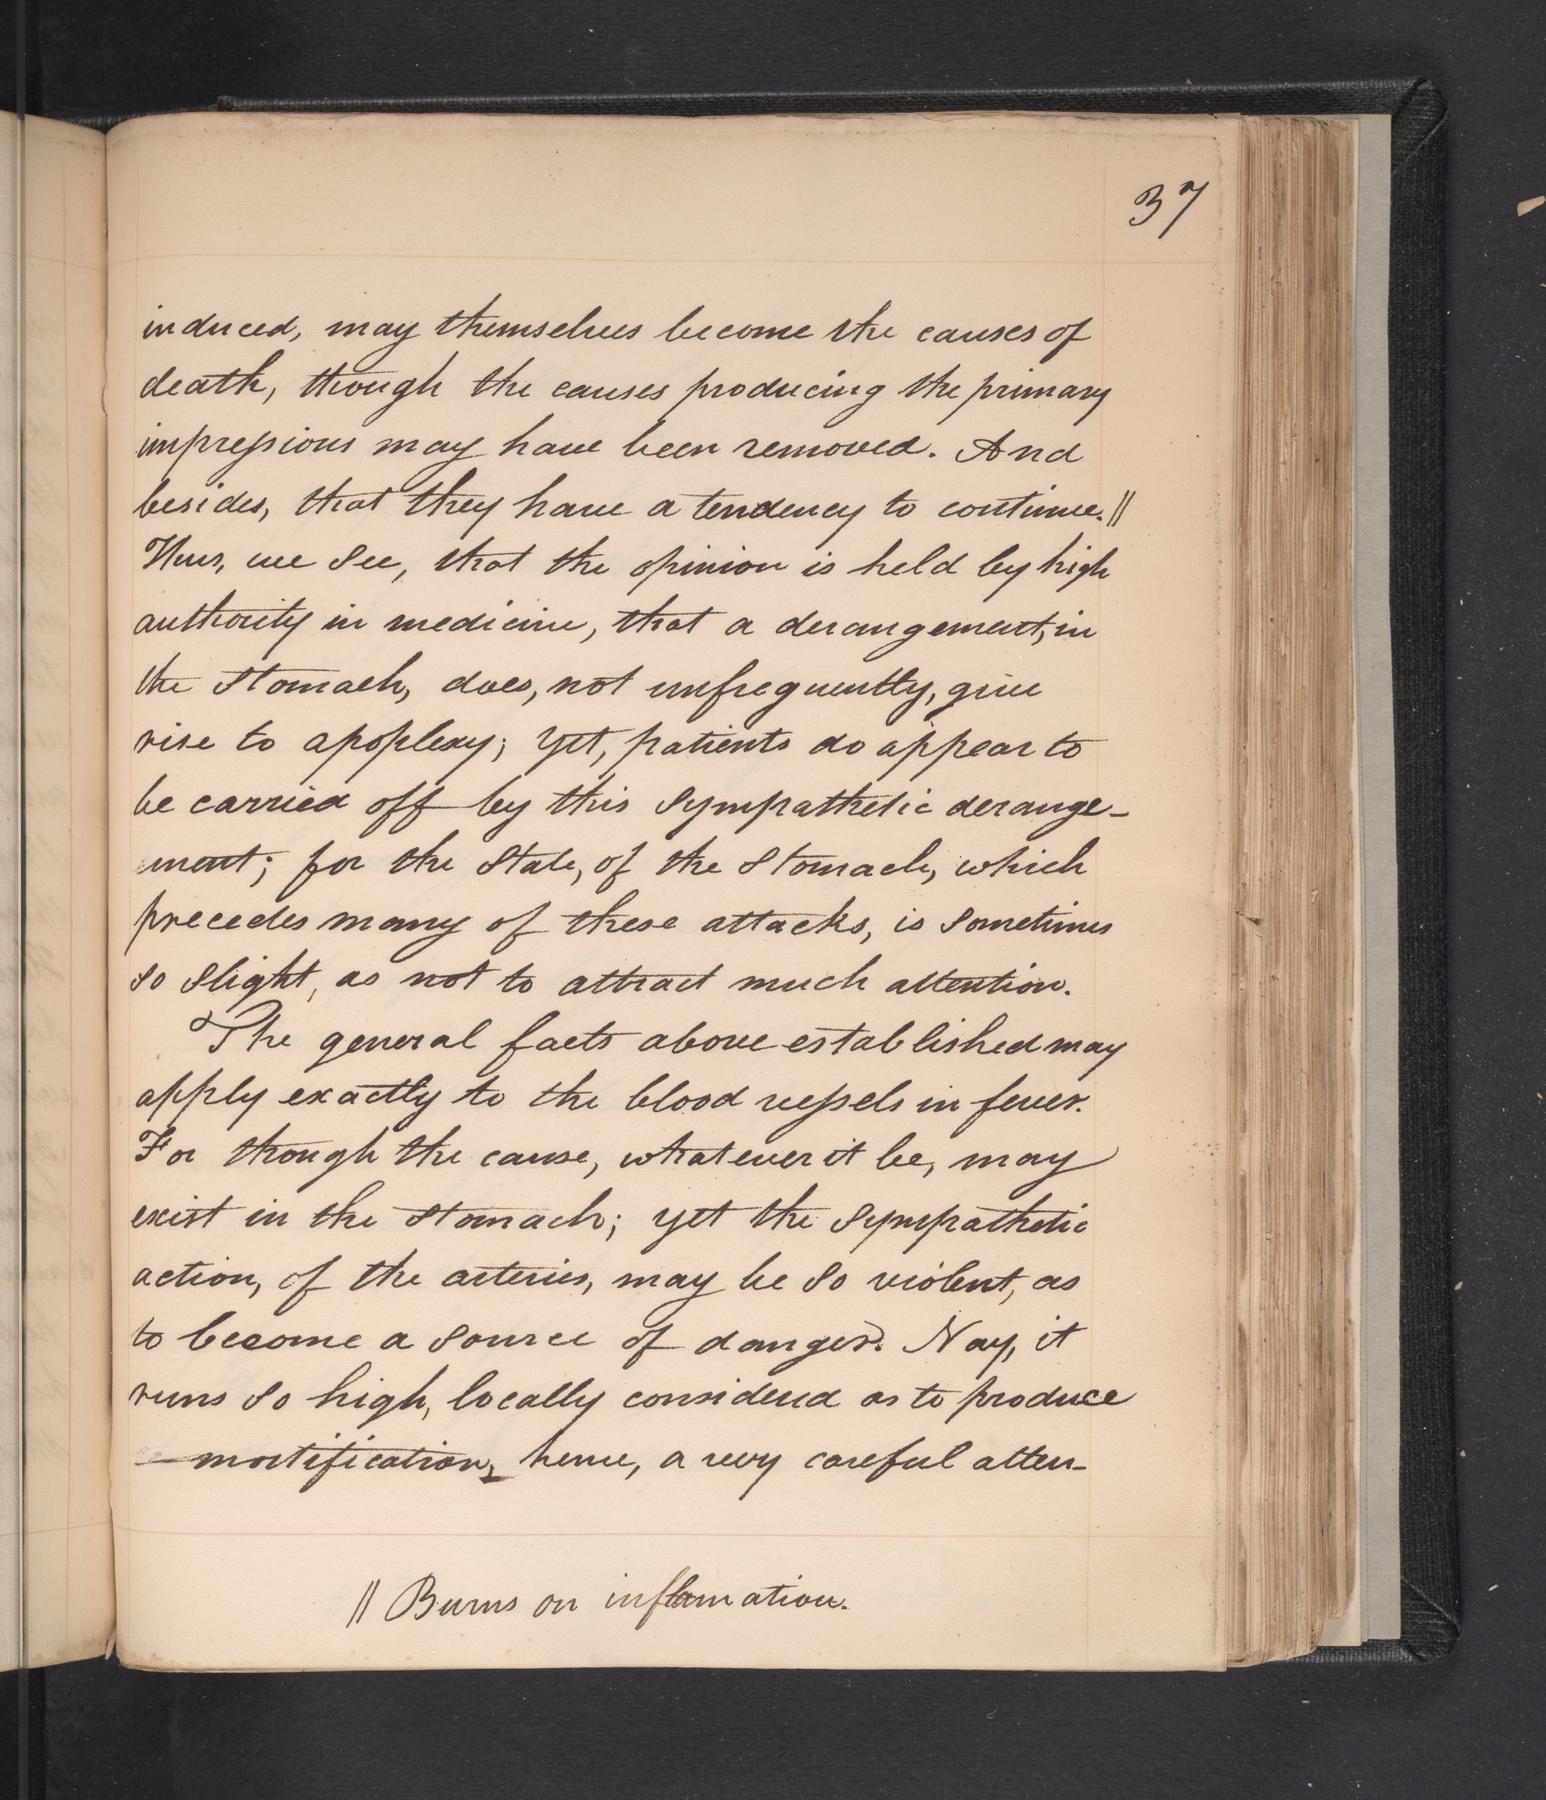 37
induced, may themselves become the causes of
death, though the causes producing the primary
impressions may have been removed. And
besides, that they have a tendency to continue.||
Thus, we see, that the opinion is held by high
authority in medicine, that a derangement, in
the stomach, does, not unfrequently, give
rise to apoplexy; yet, patients do appear to
be carried off by this sympathetic derange-
ment; for the state, of the stomach, which
precedes many of these attacks, is sometimes
so slight, as not to attract much attention.
The general facts above established may
apply exactly to the blood vessels in fever.
For though the cause, whatever it be, may
exist in the stomach; yet the sympathetic
action, of the arteries, may be so violent, as
to become a source of danger. Nay, it
runs so high, locally considerd as to produce
mortification, hence, a very careful atten-
|| Burns on inflamation.